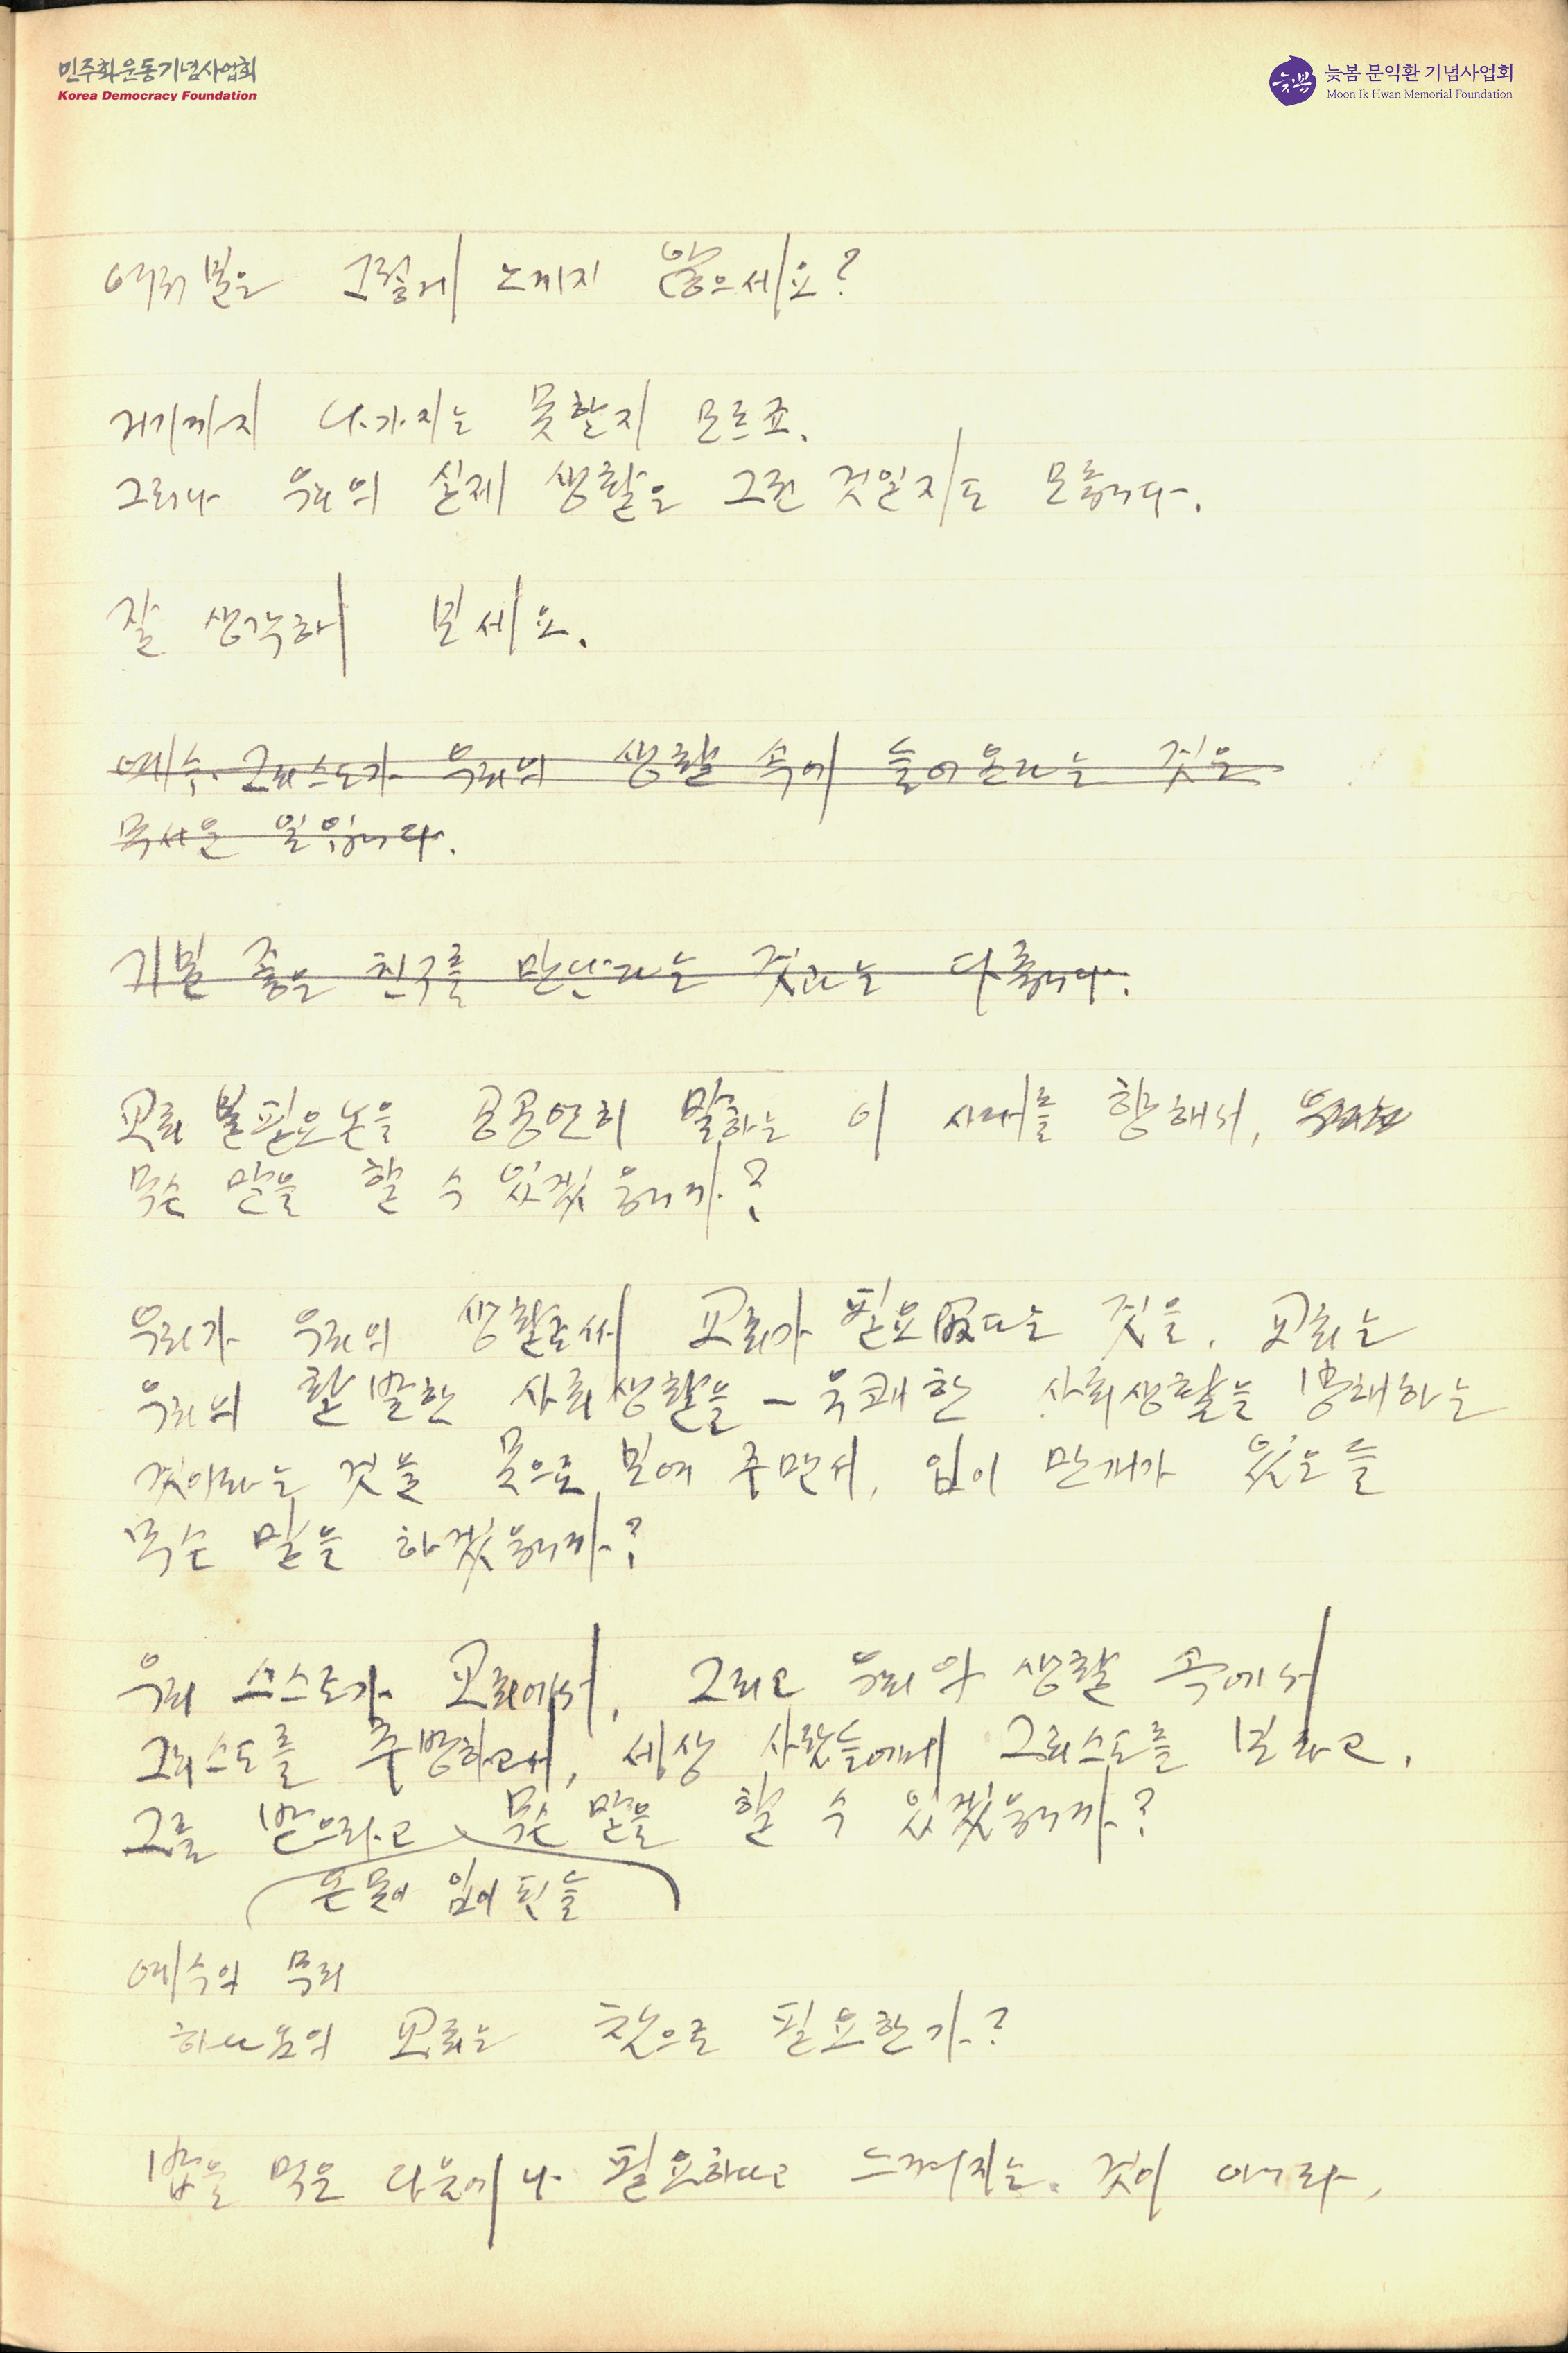 민주화운동기념사업회
Korea Democracy Foundation
늦봄 문익환 기념사업회
Moon Ik Hwan Memorial Foundation
늦봄
여러분은 그렇게 느끼지 않으세요?
거기까지 나가지는 못할지 모르죠.
그러나 우리의 실제 생활은 그런 것일지도 모릅니다.
잘 생각해 보세요.
예수·그리스도가 우리의 생활 속에 들어온다는 것은
무서운 일입니다.
기분 좋은 친구를 만난다는 것과는 다릅니다.
교회 불필요논을 공공연히 말하는 이 시대를 향해서,
무슨 말을 할 수 있겠읍니까?
우리가 우리의 생활로써 교회가 필요없다는 것을, 교회는
우리의 활발한 사회생활을 – 유쾌한 사회생활을 방해하는
것이라는 것을 몸으로 보여 주면서, 입이 만개가 있은들
무슨 말을 하겠읍니까?
우리 스스로가 교회에서, 그리고 우리의 생활 속에서
그리스도를 추방하고서, 세상 사람들에게 그리스도를 보라고,
그를 받으라고 무슨 말을 할 수 있겠읍니까?
온 몸이 입이 된들
예수의 무리
하나님의 교회는 참으로 필요한가?
밥을 먹은 다음에나 필요하다고 느껴지는 것이 아니라,